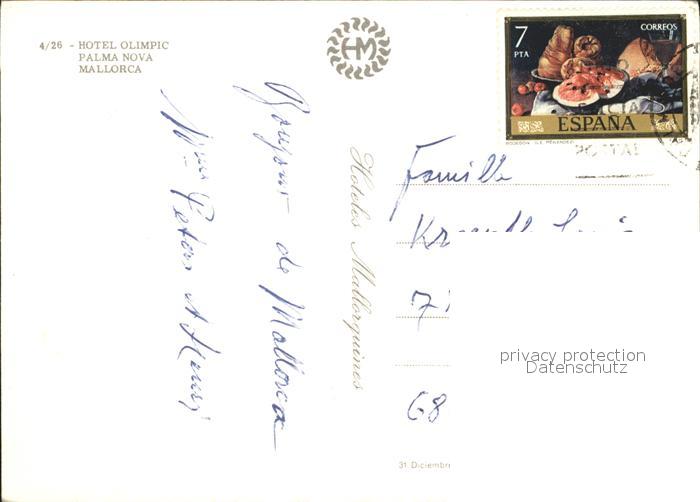 4/26 - HOTEL OLIMPIC
PALMA NOVA
MALLORCA
HM
7
PTA
CORREOS
ESPAÑA
POSTAL
Hoteles Mallorquines
Bonjour de Mallorca
Mme Peters et Henri
Famille
71
68
privacy protection
Datenschutz
31 Diciembr